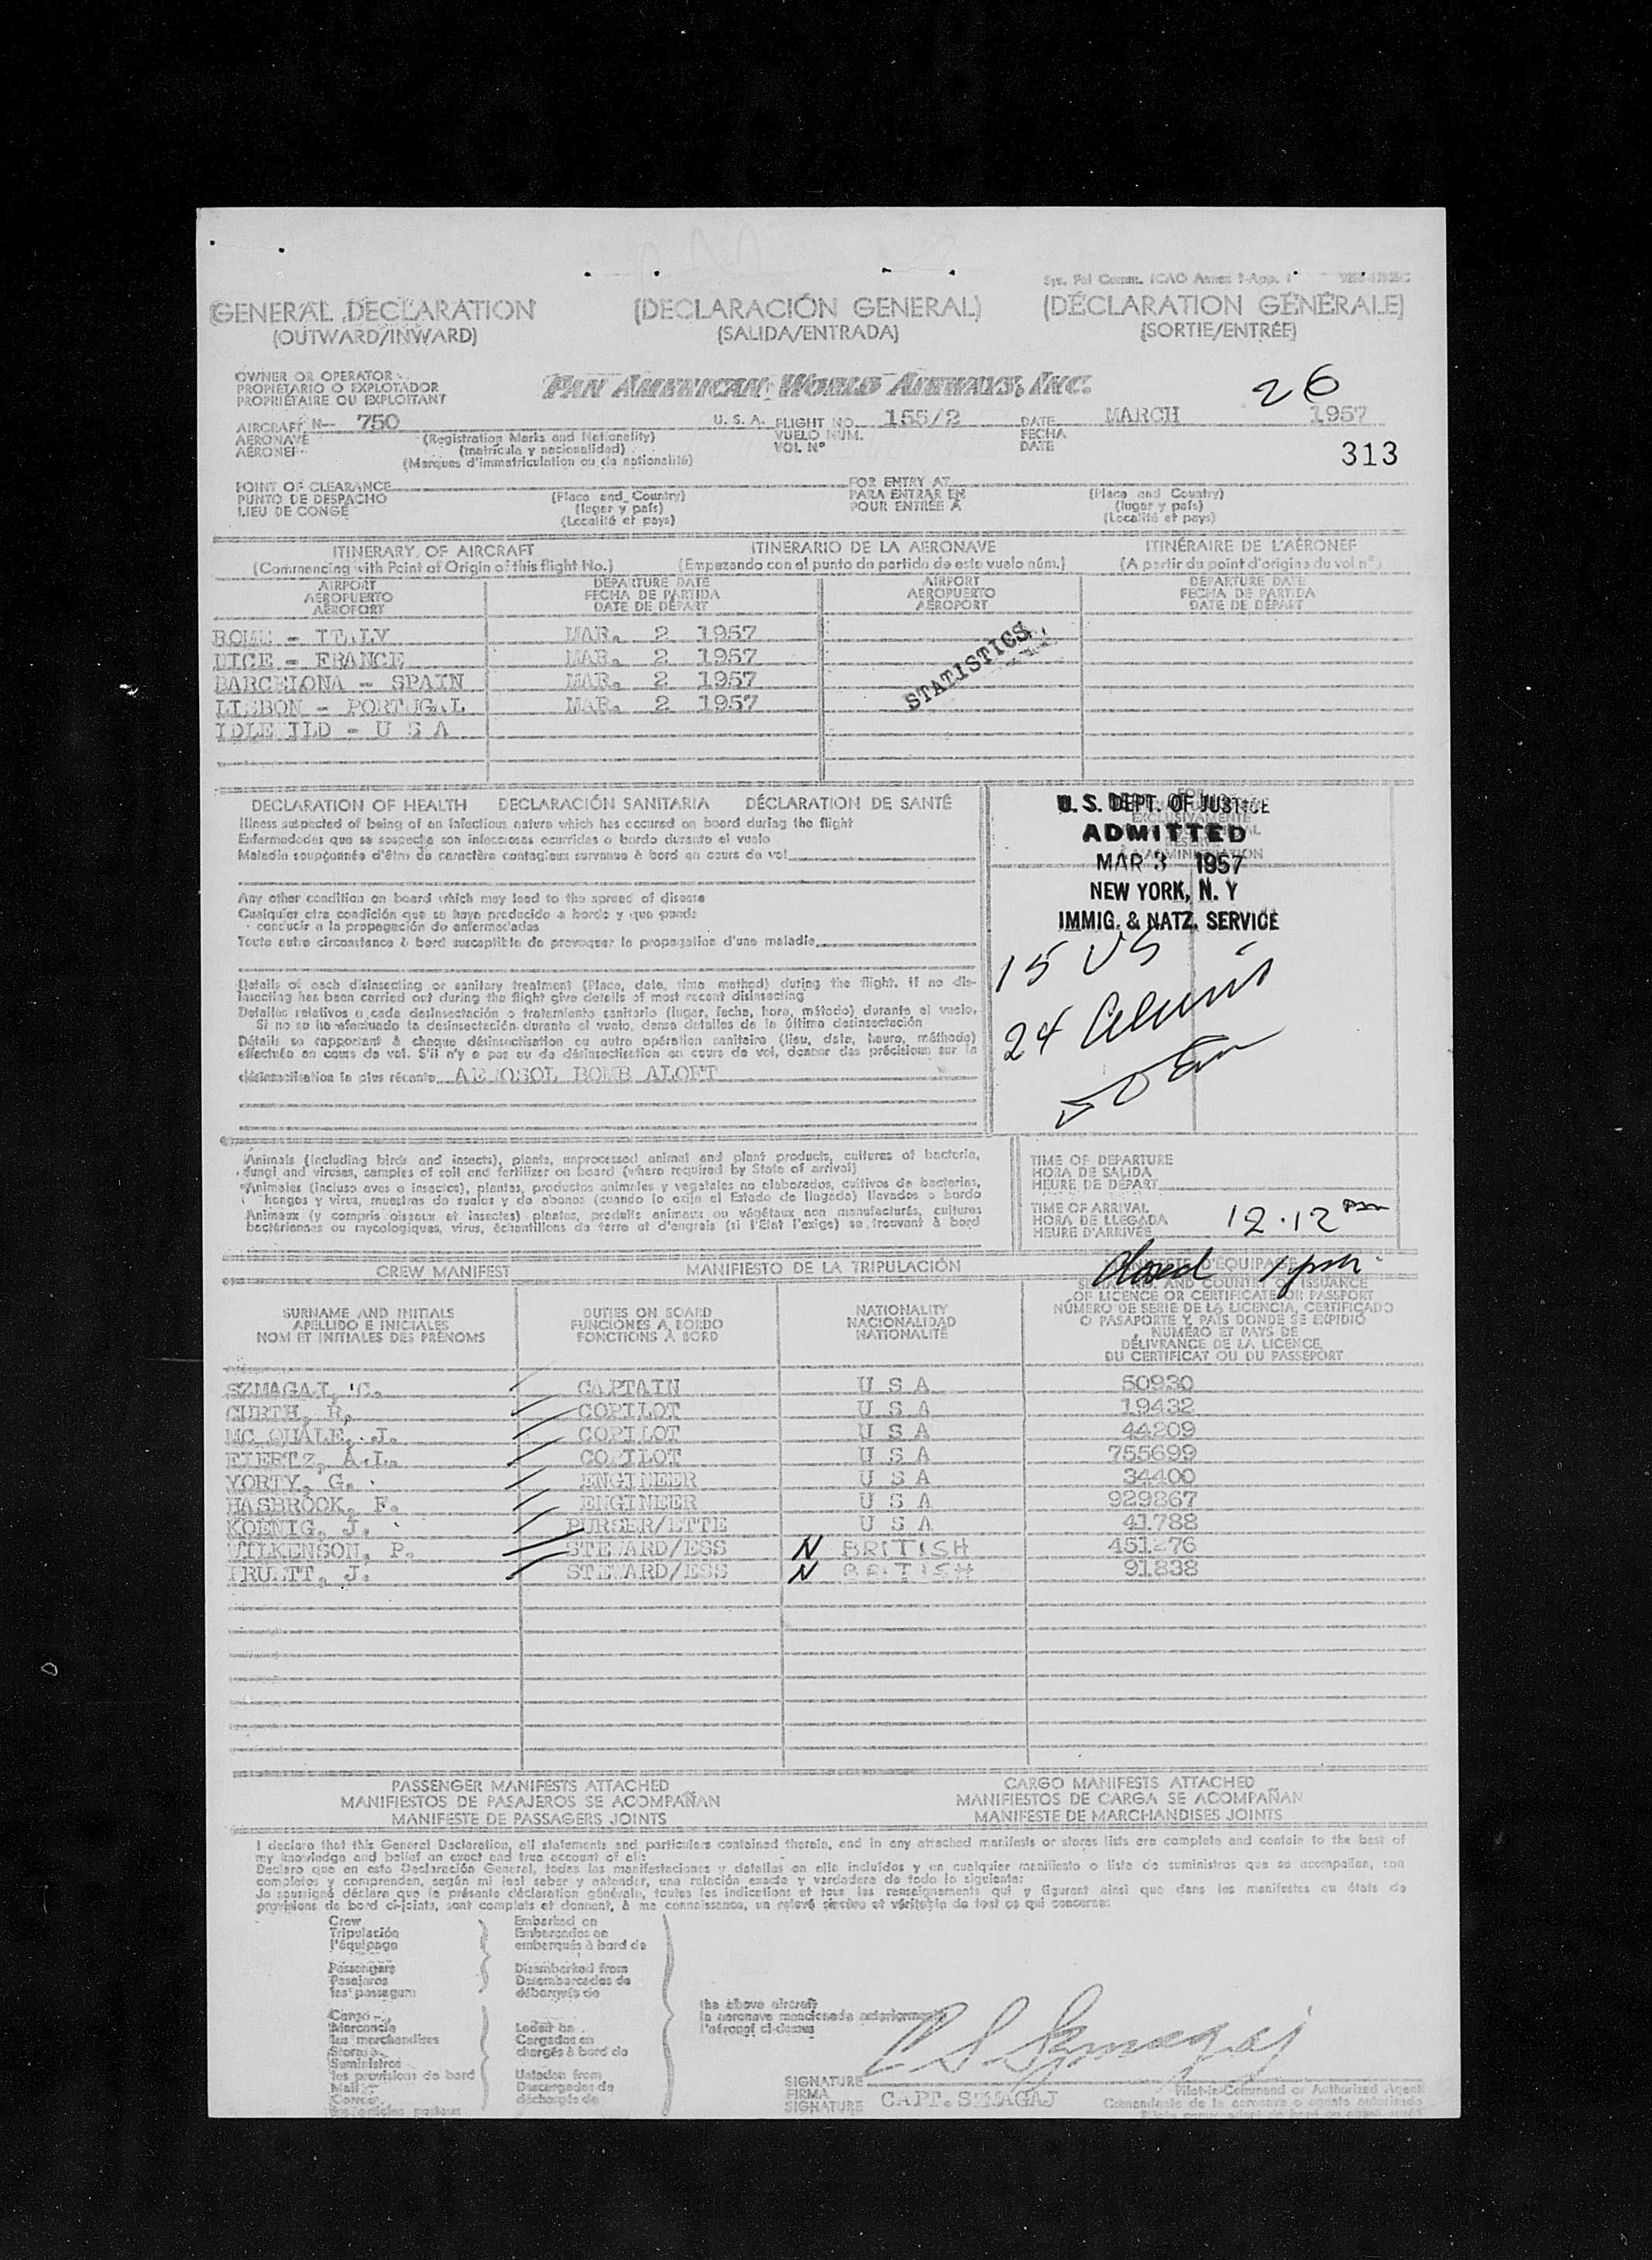 Sys. Fol Comm. ICAO Annex 9-App. 1
GENERAL DECLARATION (DECLARACIÓN GENERAL) (DÉCLARATION GÉNÉRALE)
(OUTWARD/INWARD) (SALIDA/ENTRADA) (SORTIE/ENTRÉE)
OWNER OR OPERATOR
PROPIETARIO O EXPLOTADOR
PROPRIÉTAIRE OU EXPLOITANT
PAN AMERICAN WORLD AIRWAYS, INC.
26
AIRCRAFT N- 750 U. S. A. FLIGHT NO. 155/2 DATE MARCH 1957
AERONAVE (Registration Marks and Nationality) VUELO NUM. FECHA
AÉRONEF (matrícula y nacionalidad) VOL Nº DATE
(Marques d'immatriculation ou de nationalité)
313
POINT OF CLEARANCE FOR ENTRY AT
PUNTO DE DESPACHO (Place and Country) PARA ENTRAR EN (Place and Country)
LIEU DE CONGÉ (lugar y país) POUR ENTRÉE À (lugar y país)
(Localité et pays) (Localité et pays)
ITINERARY OF AIRCRAFT ITINERARIO DE LA AERONAVE ITINÉRAIRE DE L'AÉRONEF
(Commencing with Point of Origin of this flight No.) (Empezando con el punto de partida de este vuelo núm.) (A partir du point d'origine du vol nº)
AIRPORT DEPARTURE DATE AIRPORT DEPARTURE DATE
AEROPUERTO FECHA DE PARTIDA AEROPUERTO FECHA DE PARTIDA
AÉROPORT DATE DE DÉPART AÉROPORT DATE DE DÉPART
ROME - ITALY MAR. 2 1957
NICE - FRANCE MAR. 2 1957
BARCELONA - SPAIN MAR. 2 1957
LISBON - PORTUGAL MAR. 2 1957
IDLE ILD - U S A
STATISTICS
DECLARATION OF HEALTH DECLARACIÓN SANITARIA DÉCLARATION DE SANTÉ
Illness suspected of being of an infectious nature which has occured on board during the flight
Enfermedades que se sospeche son infecciosas ocurridas a bordo durante el vuelo
Maladie soupçonnée d'être de caractère contagieux survenue à bord en cours de vol
Any other condition on board which may lead to the spread of disease
Cualquier otra condición que se haya producido a bordo y que puede
conducir a la propagación de enfermedades
Toute autre circonstance à bord susceptible de provoquer la propagation d'une maladie
Details of each disinsecting or sanitary treatment (Place, date, time method) during the flight. If no dis-
insecting has been carried out during the flight give details of most recent disinsecting
Detalles relativos a cada desinsectación o tratamiento sanitario (lugar, fecha, hora, método) durante el vuelo.
Si no se ha efectuado la desinsectación durante el vuelo, dense detalles de la última desinsectación
Détails se rapportant à chaque désinsectisation ou autre opération sanitaire (lieu, date, heure, méthode)
effectuée en cours de vol. S'il n'y a pas eu de désinsectisation en cours de vol, donner des précisions sur la
désinsectisation la plus récente AEROSOL BOMB ALOFT
U. S. DEPT. OF JUSTICE
ADMITTED
MAR 3 1957
NEW YORK, N. Y
IMMIG. & NATZ. SERVICE
15 US
24 Aliens
Animals (including birds and insects), plants, unprocessed animal and plant products, cultures of bacteria,
fungi and viruses, samples of soil and fertilizer on board (where required by State of arrival)
Animales (incluso aves e insectos), plantas, productos animales y vegetales no elaborados, cultivos de bacterias,
hongos y virus, muestras de suelos y de abonos (cuando lo exija el Estado de llegada) llevados a bordo
Animaux (y compris oiseaux et insectes) plantes, produits animaux ou végétaux non manufacturés, cultures
bactériennes ou mycologiques, virus, échantillons de terre et d'engrais (si l'État l'exige) se trouvant à bord
TIME OF DEPARTURE
HORA DE SALIDA
HEURE DE DÉPART
TIME OF ARRIVAL
HORA DE LLEGADA 12.12 pm
HEURE D'ARRIVÉE
closed 1 pm
CREW MANIFEST MANIFIESTO DE LA TRIPULACIÓN D'ÉQUIPAGE
SURNAME AND INITIALS DUTIES ON BOARD NATIONALITY AND COUNTRY OF ISSUANCE
APELLIDO E INICIALES FUNCIONES A BORDO NACIONALIDAD OF LICENCE OR CERTIFICATE OR PASSPORT
NOM ET INITIALES DES PRÉNOMS FONCTIONS À BORD NATIONALITÉ NÚMERO DE SERIE DE LA LICENCIA, CERTIFICADO
O PASAPORTE Y PAÍS DONDE SE EXPIDIÓ
NUMÉRO ET PAYS DE
DÉLIVRANCE DE LA LICENCE,
DU CERTIFICAT OU DU PASSEPORT
SZMAGAJ, C. CAPTAIN U S A 50930
CURTH, R, COPILOT U S A 19432
MC QUALE, J. COPILOT U S A 44209
EIERTZ, A.L. COPILOT U S A 755699
YORTY, G. ENGINEER U S A 34400
HASBROOK, F. ENGINEER U S A 929867
KOENIG, J. PURSER/ETTE U S A 41788
WILKENSON, P. STEWARD/ESS N BRITISH 451276
PRUETT, J. STEWARD/ESS N BRITISH 91838
PASSENGER MANIFESTS ATTACHED CARGO MANIFESTS ATTACHED
MANIFIESTOS DE PASAJEROS SE ACOMPAÑAN MANIFIESTOS DE CARGA SE ACOMPAÑAN
MANIFESTE DE PASSAGERS JOINTS MANIFESTE DE MARCHANDISES JOINTS
I declare that this General Declaration, all statements and particulars contained therein, and in any attached manifests or stores lists are complete and contain to the best of
my knowledge and belief an exact and true account of all:
Declaro que en esta Declaración General, todas las manifestaciones y detalles en ella incluidos y en cualquier manifiesto o lista de suministros que se acompañan, son
completos y comprenden, según mi leal saber y entender, una relación exacta y verdadera de todo lo siguiente:
Je soussigné déclare que la présente déclaration générale, toutes les indications et tous les renseignements qui y figurent ainsi que dans les manifestes ou états de
provisions de bord ci-joints, sont complets et donnent, à ma connaissance, un relevé sincère et véritable de tout ce qui concerne:
Crew Embarked on
Tripulación Embarcados en
l'équipage embarqués à bord de
Passengers Disembarked from
Pasajeros Desembarcados de
les passagers débarqués de
the above aircraft
la aeronave mencionada anteriormente
l'aéronef ci-dessus
Cargo
Mercancía Loaded on
les marchandises Cargados en
Stores chargés à bord de
Suministros
les provisions de bord Unladen from
Mail Descargados de
Correo déchargés de
les articles postaux
C S. Szmagaj
SIGNATURE Pilot-in-Command or Authorized Agent
FIRMA CAPT. SZMAGAJ Comandante de la aeronave o agente autorizado
SIGNATURE